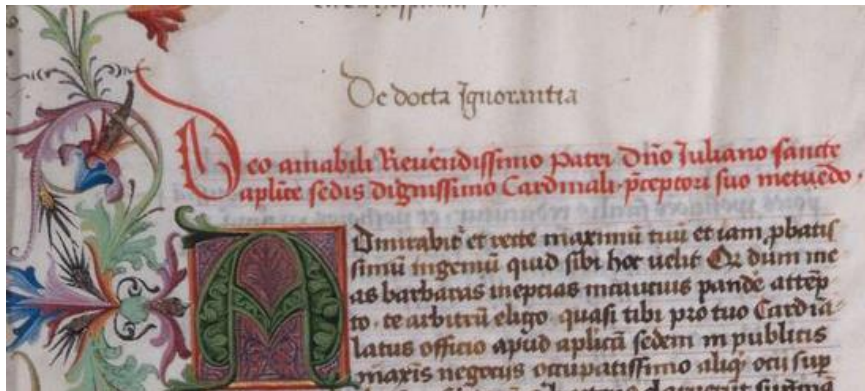 De docta Ignorantia
Deo amabili Reuendissimo patri dño Iuliano sancte
aplice sedis dignissimo Cardinali p̄ceptori suo metuēdo.
Admirabit᷑ et recte maximū tuū et iam ꝓbatis
simū ingeniū quid sibi hoc uelit Qꝛ dum me
as barbaras ineptias incautius pandē attēp
to. te arbitrū eligo. quasi tibi pro tuo Cardīa
latus officio apud aplicā sedem in publicis
maxīs negocijs occupatissimo aliqͥ ocij sup